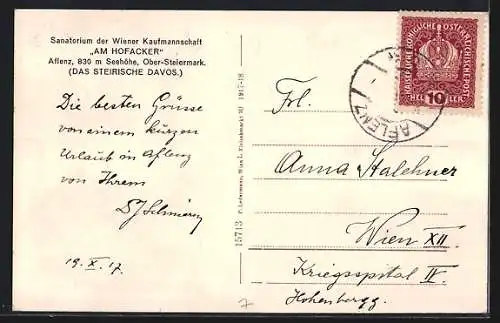 Sanatorium der Wiener Kaufmannschaft
"AM HOFACKER"
Aflenz, 830 m Seehöhe, Ober-Steiermark.
(DAS STEIRISCHE DAVOS.)
Die besten Grüsse
von einem kurzen
Urlaub in Aflenz
von Ihrem
19. X. 17
15713 P. Ledermann, Wien I. Fleischmarkt 1917-18
KAISERLICHE KÖNIGLICHE ÖSTERREICHISCHE POST
HEL 10 LER
AFLENZ
Frl.
Anna
Wien XII
Kriegsspital IV
Hohenbergg.
7